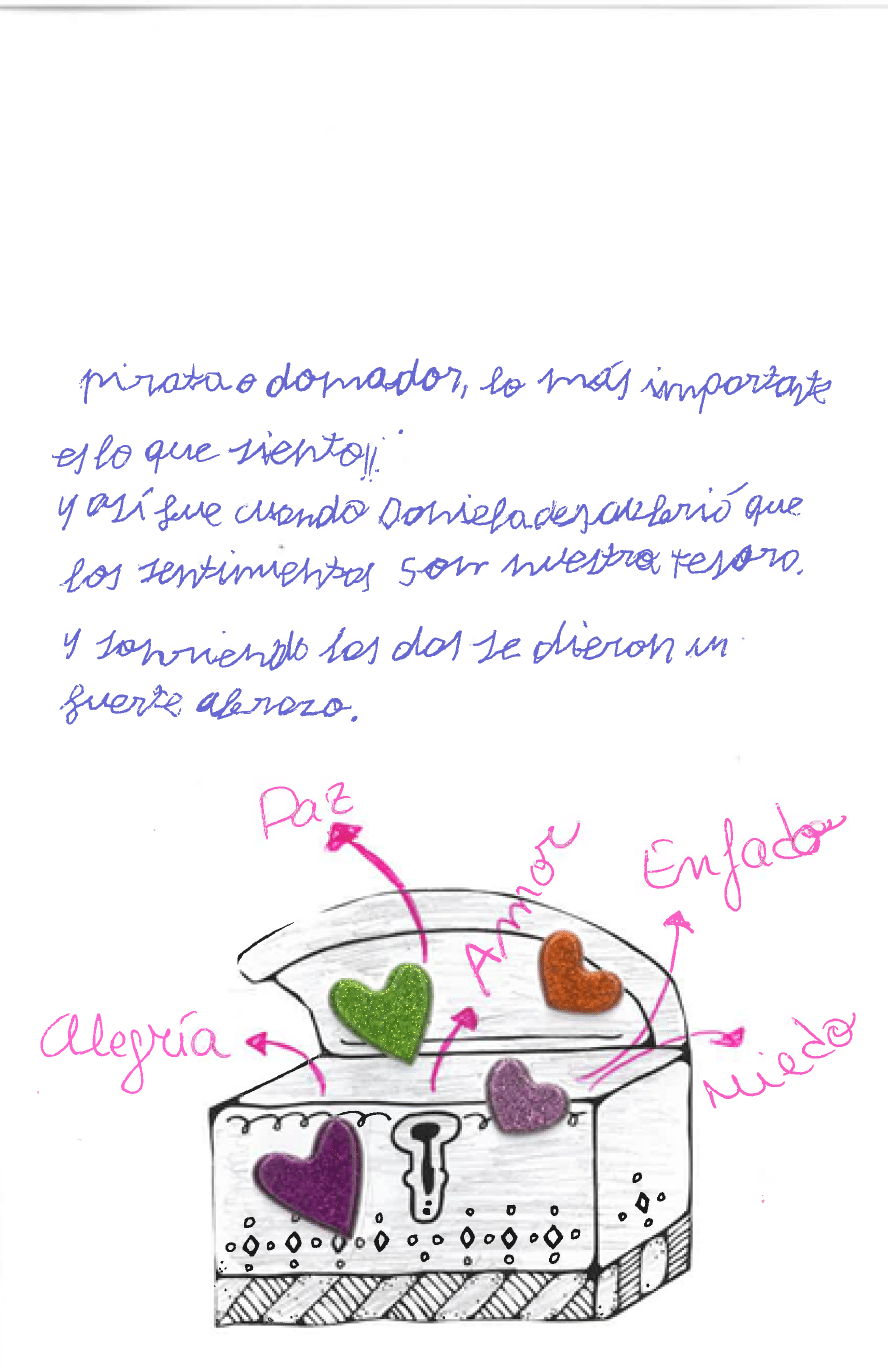 pirata o domador, lo más importante
es lo que siento!!
y así fue cuando Daniela descubrió que
los sentimientos son nuestro tesoro.
Y sonriendo los dos se dieron un
fuerte abrazo.
Paz
Amor
Enfado
Alegría
Miedo